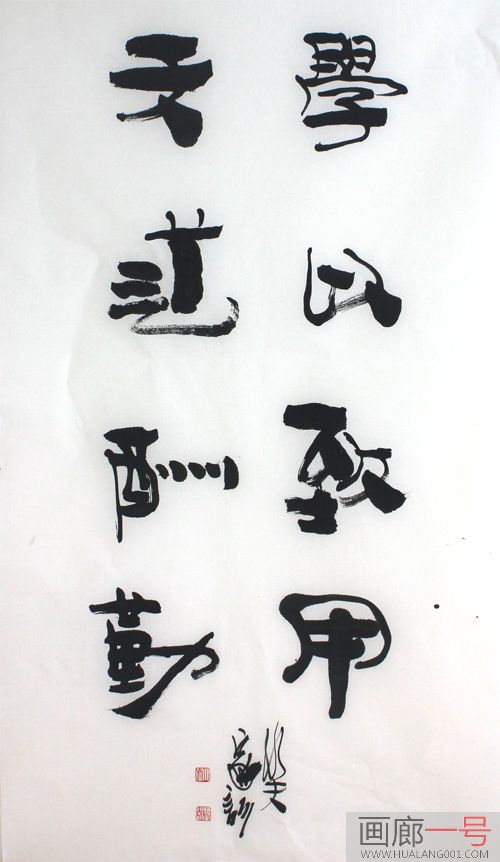 學以致用
天道酬勤
画廊一号
WWW.HUALANG001.COM